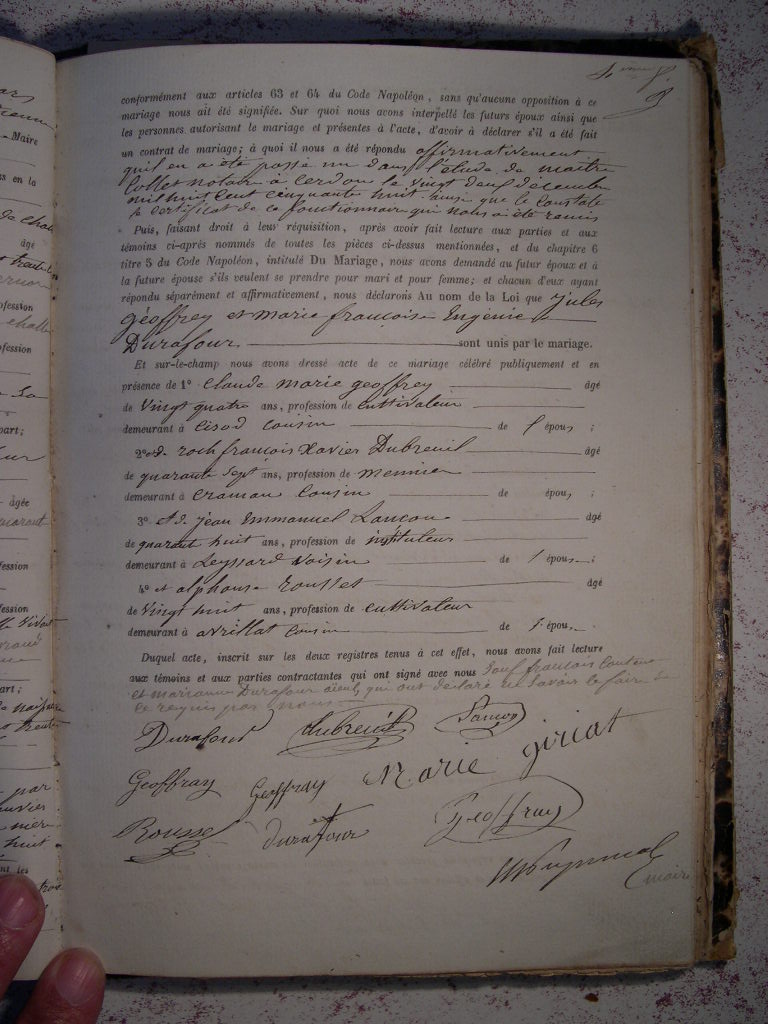 conformément aux articles 63 et 64 du Code Napoléon, sans qu'aucune opposition à ce
mariage nous ait été signifiée. Sur quoi nous avons interpellé les futurs époux ainsi que
les personnes autorisant le mariage et présentes à l'acte, d'avoir à déclarer s'il a été fait
un contrat de mariage; à quoi il nous a été répondu affirmativement
qu'il en a été passé un dans l'étude de maitre
Collet notaire à Cerdon le vingt deux décembre
mil huit cent cinquante huit ainsi que le constate
le certificat de ce fonctionnaire qui nous a été remis
Puis, faisant droit à leur réquisition, après avoir fait lecture aux parties et aux
témoins ci-après nommés de toutes les pièces ci-dessus mentionnées, et du chapitre 6
titre 5 du Code Napoléon, intitulé Du Mariage, nous avons demandé au futur époux et à
la future épouse s'ils veulent se prendre pour mari et pour femme; et chacun d'eux ayant
répondu séparément et affirmativement, nous déclarons Au nom de la Loi que Jules
géoffrey et marie françoise Eugénie
Durafour sont unis par le mariage.
Et sur-le-champ nous avons dressé acte de ce mariage célébré publiquement et en
présence de 1° Claude marie geoffrey âgé
de Vingt quatre ans, profession de Cultivateur
demeurant à Cirod cousin de l'épous ;
2° et de roch francois Xavier Dubreuil âgé
de quarante sept ans, profession de meunier
demeurant à Craman Cousin de épous ;
3° et d. jean Emmanuel Lançon âgé
de quarant huit ans, profession de instituteur
demeurant à Leyssard Voisin de l épous ;
4° et alphonse rousset âgé
de Vingt huit ans, profession de cultivateur
demeurant à avrillat cousin de l' épou
Duquel acte, inscrit sur les deux registres tenus à cet effet, nous avons fait lecture
aux témoins et aux parties contractantes qui ont signé avec nous Sauf francois
et marianne Durafour aieul, qui ont déclaré ne savoir le faire
de requis par nous
Durafour dubreuil Lançon
Geoffray Geoffray Marie giriat
Rousset durafour Geoffray
maire